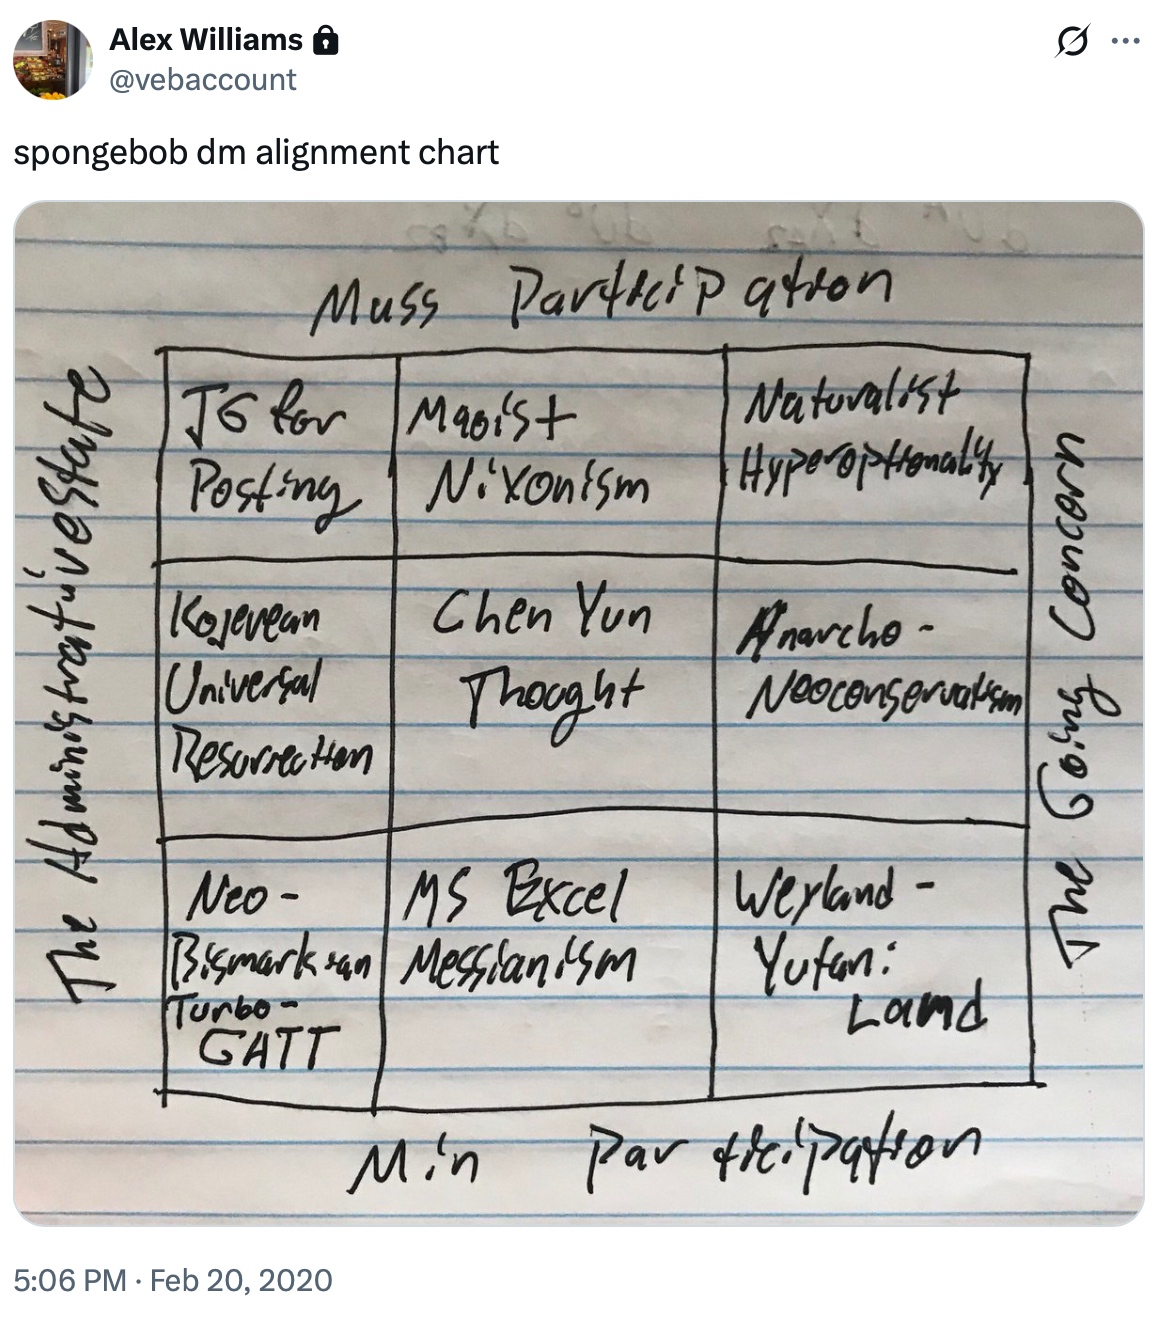 Alex Williams
@vebaccount
spongebob dm alignment chart
Mass Participation
The Administrative State
JG for
Posting
Maoist
Nixonism
Naturalist
Hyperoptionality
The Going Concorn
Kojevean
Universal
Resurrection
Chen Yun
Thought
Anarcho-
Neoconservatism
Neo-
Bismarksan
Turbo-
GATT
MS Excel
Messianism
Weyland-
Yutani
Land
Min Participation
5:06 PM · Feb 20, 2020